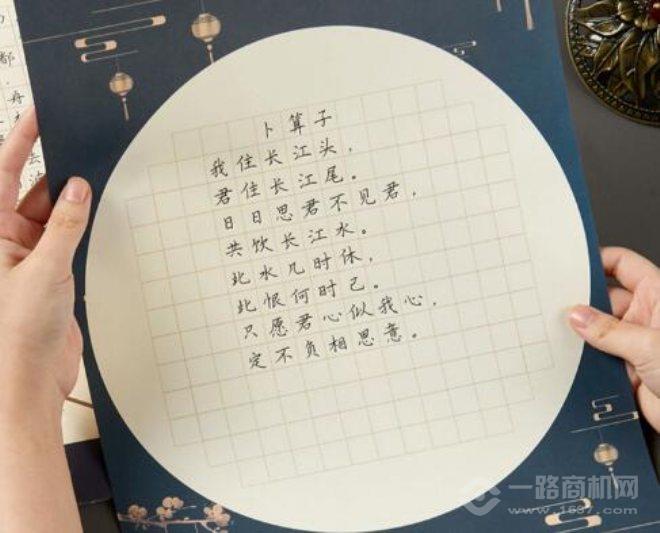 卜算子
我住长江头，
君住长江尾。
日日思君不见君，
共饮长江水。
此水几时休，
此恨何时已。
只愿君心似我心，
定不负相思意。
都
去
波
一路商机网
www.1637.com